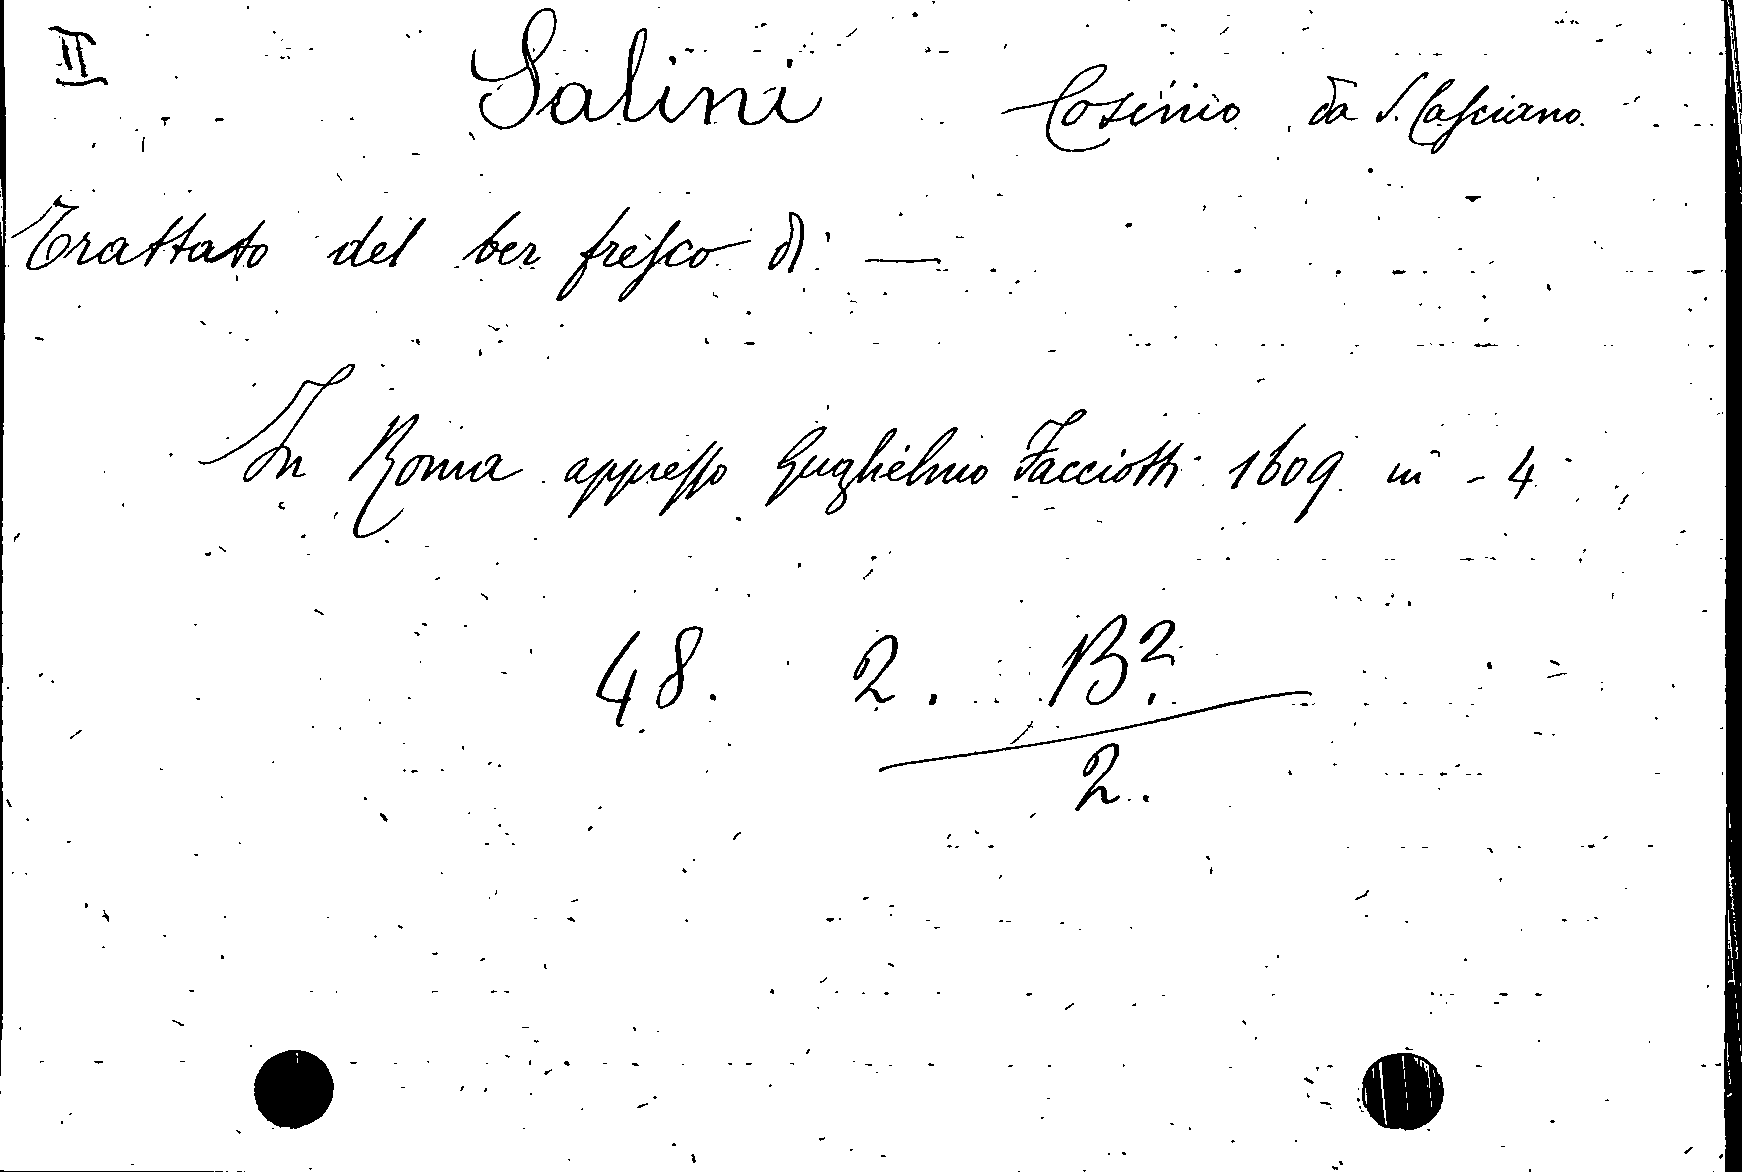 II Salini Cosimo da S. Casciano
Trattato del ber fresco di —
In Roma appresso Guglielmo Facciotti 1609 in - 4
48. 2. B2.
2.